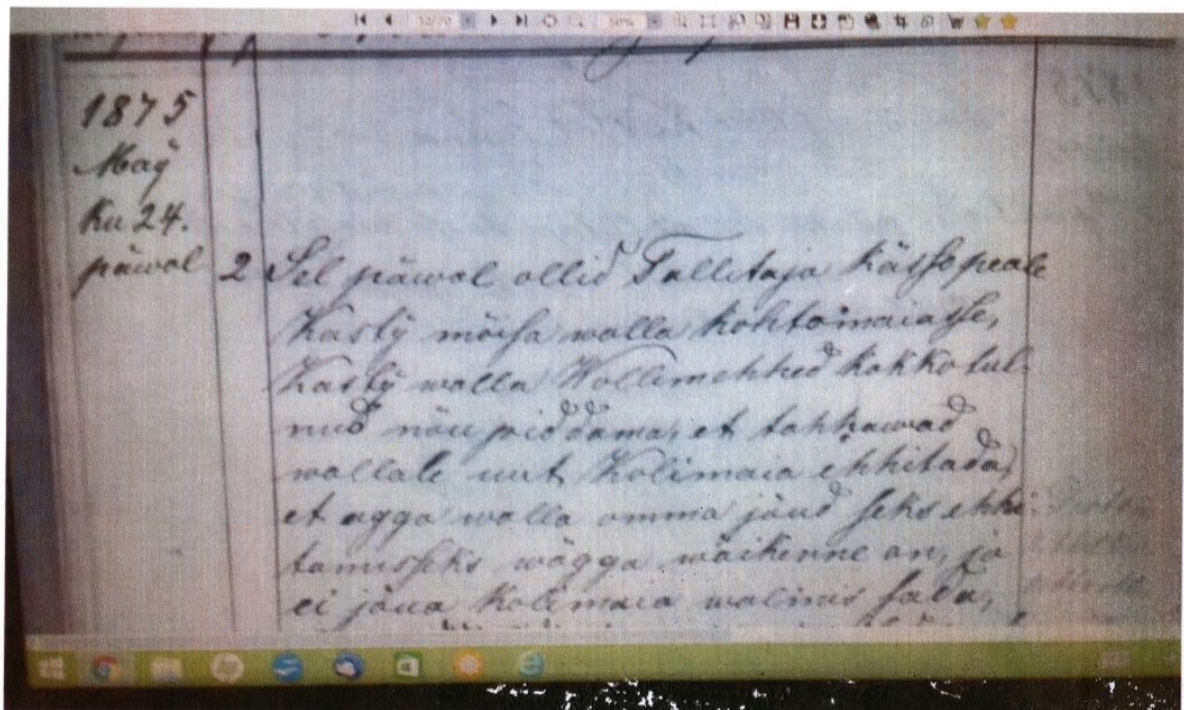 1875
May
ku 24.
päwal
2 Sel päwal ollid Tallitaja kässo peale
Kasty mõisa walla kohtomaiasse,
Kasty walla Wollimehhed kokko tul-
nud nõu piddama, et tahhawad
wallale uut Kolimaia ehhitada,
et agga walla omma jäud seks ehhi-
tamisseks wägga wäikenne on, ja
ei jõua Kolimaia walmis sada,